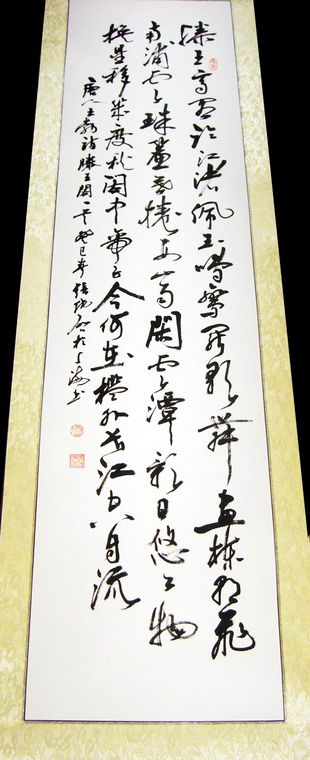 滕王高閣臨江渚佩玉鳴鸞罷歌舞畫棟朝飛
南浦云珠簾暮捲西山雨閑云潭影日悠々物
換星移幾度秋閣中帝子今何在檻外長江空自流
唐人王勃詩滕王閣一首癸巳年 於上海書